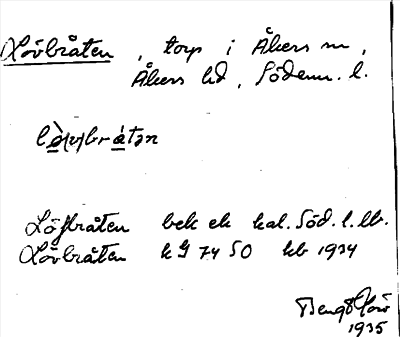 Lövbråten, torp i Åkers sn,
Åkers hd, Söderm. l.
Löfbråten bek ek kal. Söd. l. llb.
Lövbråten kg 74 SO hb 1934
Bengt
1935